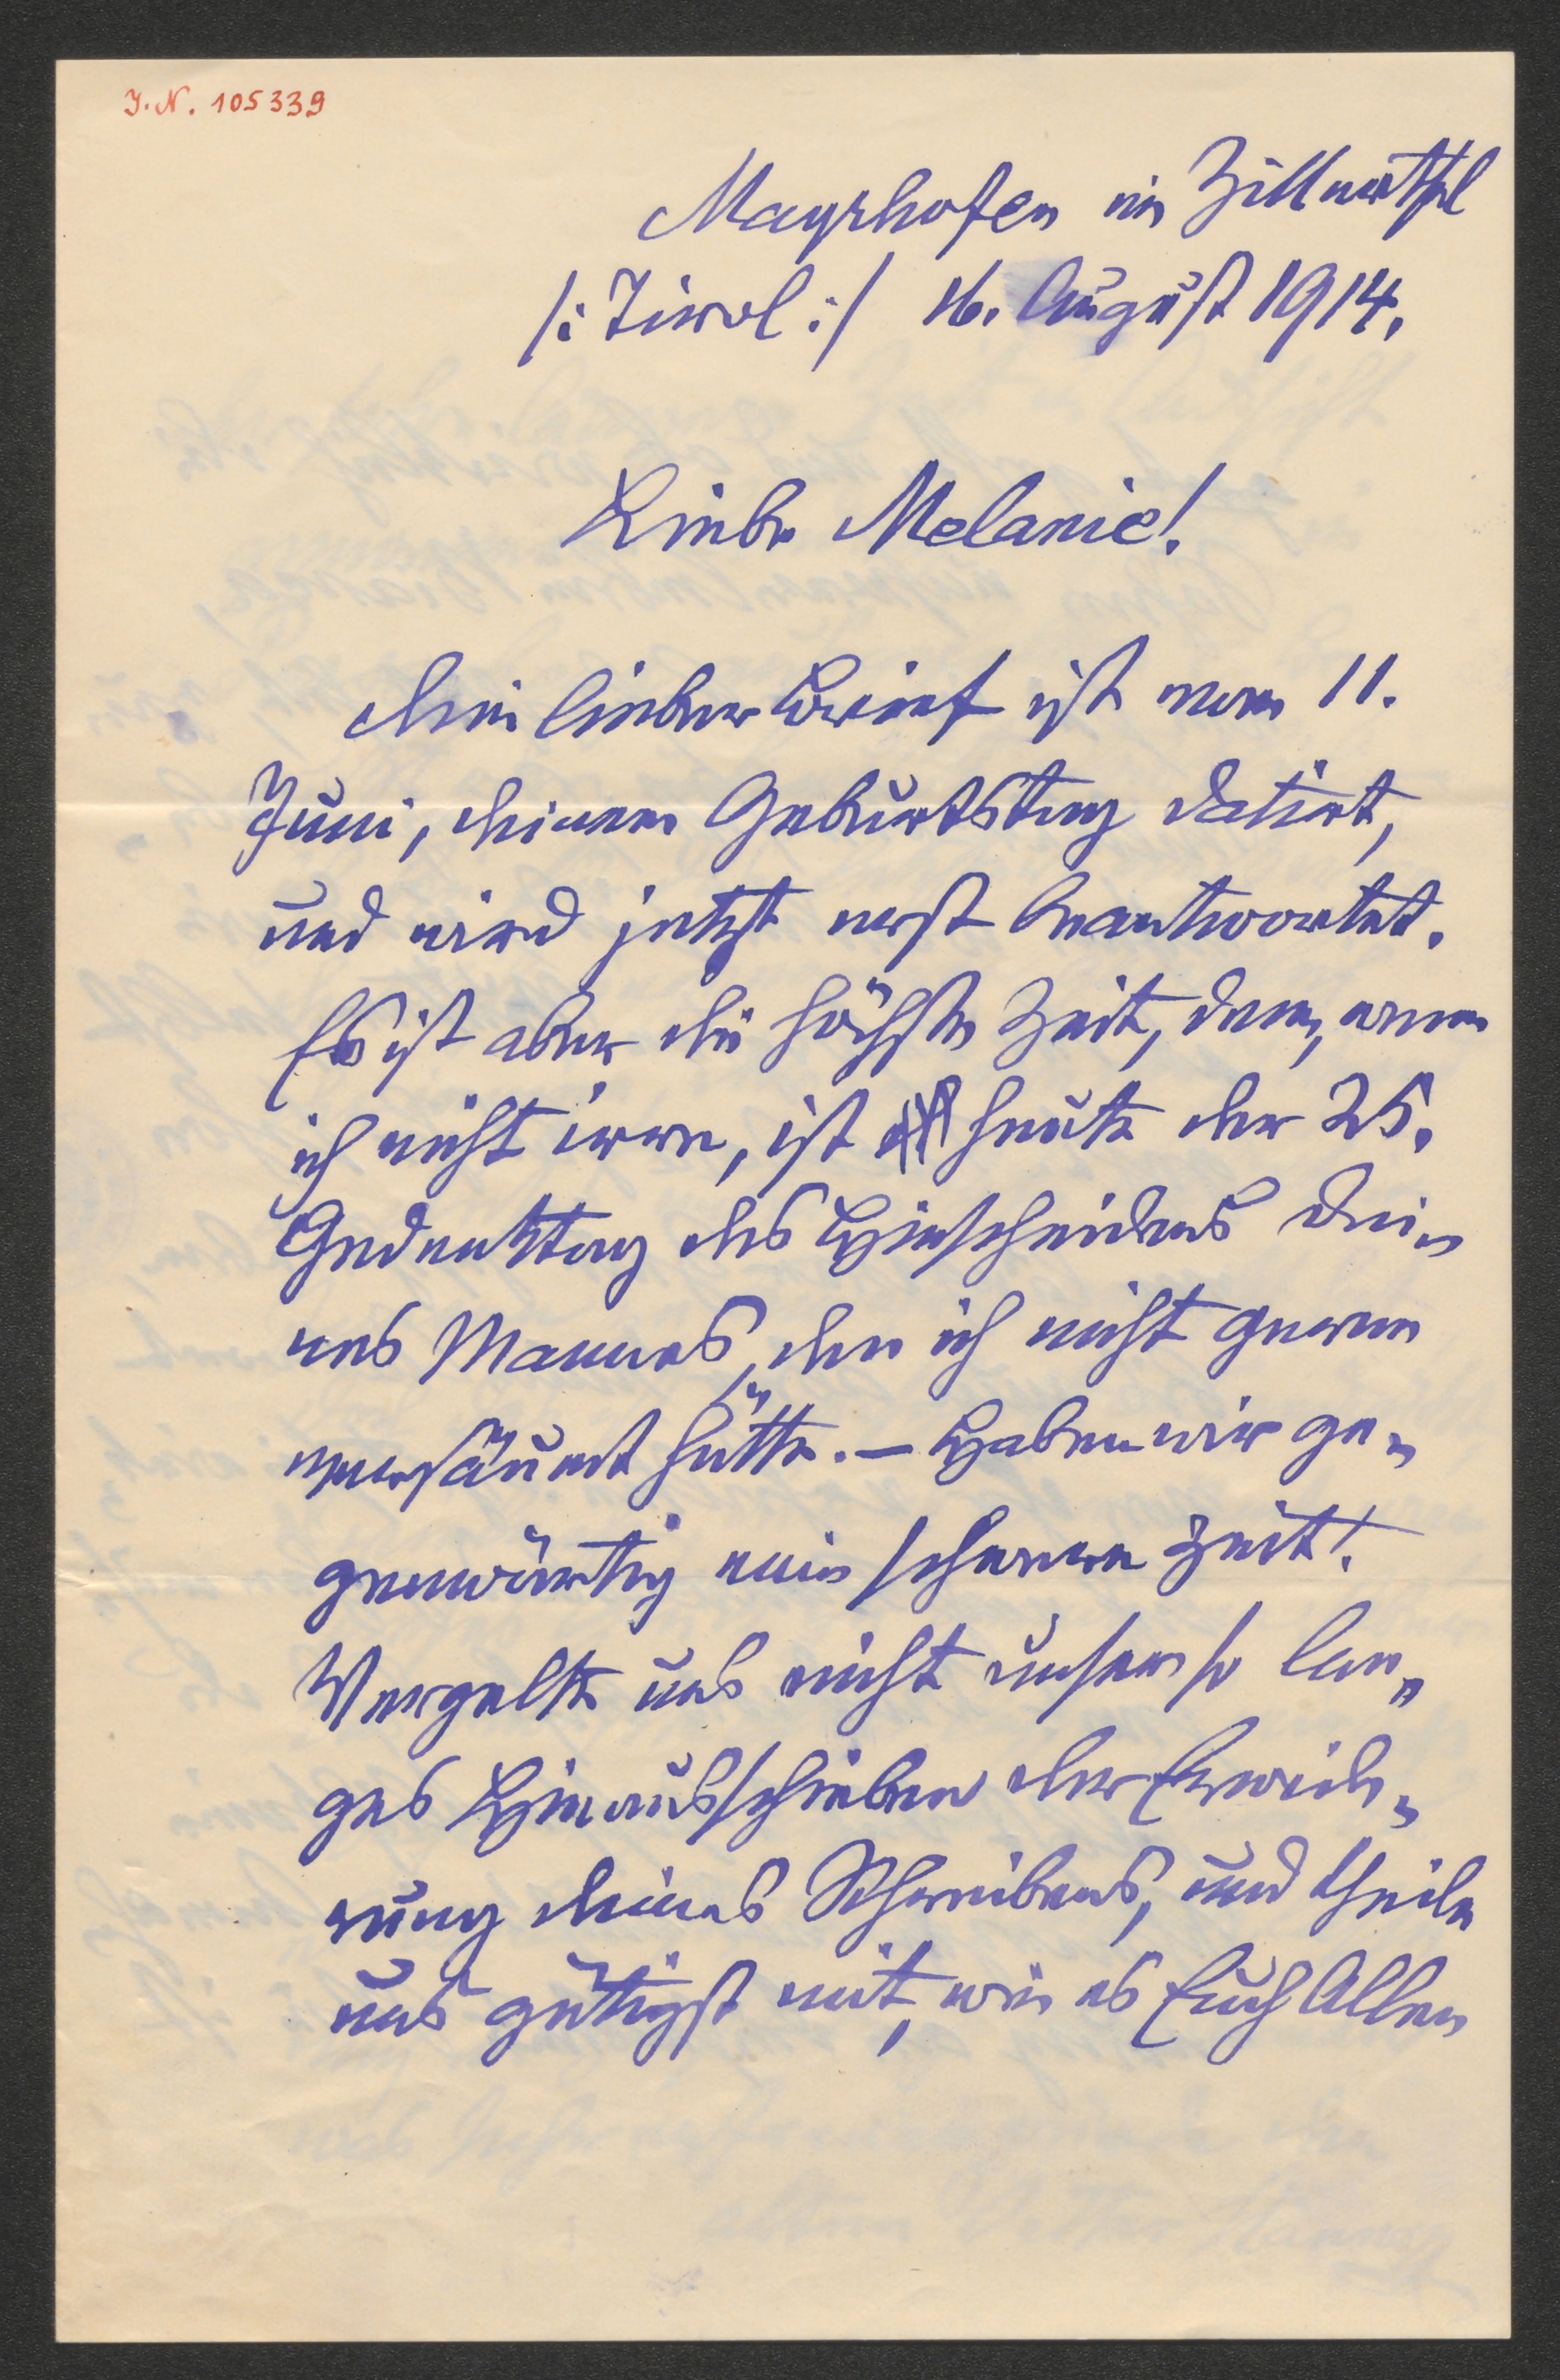 J. N. 105339
Mayrhofen im Zillerthal
/: Tirol :/ 16. August 1914.
Liebe Melanie!
Dein lieber Brief ist vom 11.
Juni, Deinem Geburtstag datirt,
und wird jetzt erst beantwortet.
Es ist aber die höchste Zeit, denn, wenn
ich nicht irre, ist heute der 25.
Gedenktag des Hinscheidens Dei-
nes Mannes, den ich nicht gerne
versäumt hätte. – Haben wir ge-
genwärtig eine schwere Zeit!
Vergelte uns nicht unser so lan-
ges Hinausschieben der Erwide-
rung Deines Schreibens, und theile
uns gütigst mit, wie es Euch Allen